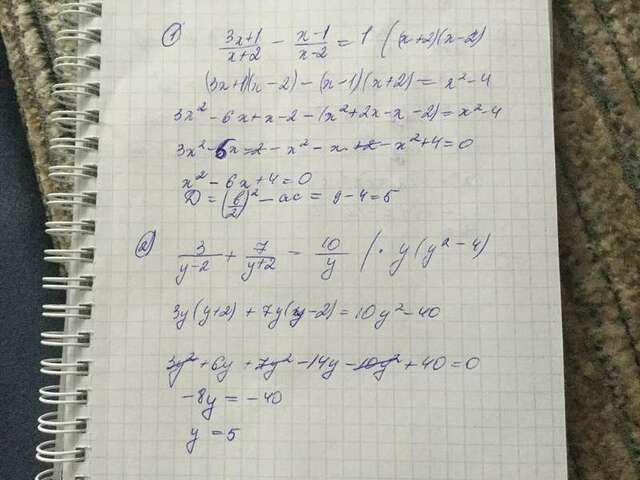 ① (3x+1)/(x+2) - (x-1)/(x-2) = 1 | (x+2)(x-2)
(3x+1)(x-2) - (x-1)(x+2) = x²-4
3x² - 6x + x - 2 - (x² + 2x - x - 2) = x² - 4
3x² - 5x - 2 - x² - x + 2 - x² + 4 = 0
x² - 6x + 4 = 0
D = (b/2)² - ac = 9 - 4 = 5
② 3/(y-2) + 7/(y+2) = 10/y | · y(y² - 4)
3y(y+2) + 7y(y-2) = 10y² - 40
3y² + 6y + 7y² - 14y - 10y² + 40 = 0
-8y = -40
y = 5